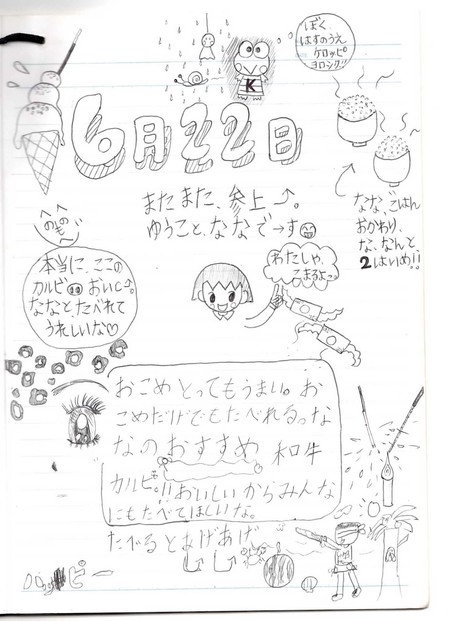 ぼく
はすのうえ
ケロッピ
ヨロシク!!
K
6月22日
またまた、参上
ゆうこと、ななでーす
なな、ごはん
おかわり、
な、なんと、
2はいめ!!
へのへのもへ
本当に、ここの
カルビ おいしい
ななと、たべれて
うれしいな♡
わたしゃ、
こまるよ
おこめとってもうまい。お
こめだけでもたべれるっな
なのおすすめ 和牛
カルビ。!!おいしいからみんな
にもたべてほしいな。
たべるとあげあげ